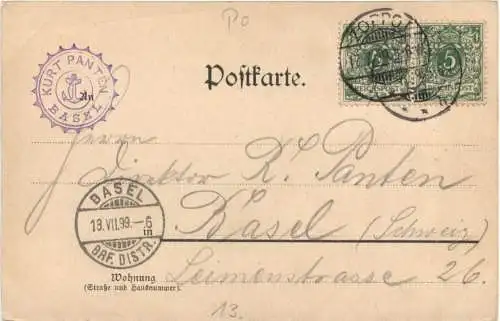 Po
ZOPPOT
5 5
KURT PANTEN
BASEL
Postkarte.
An
Herrn
Direktor K. Panten
BASEL
18.VII.99.–6
BRF. DISTR.
in
Basel (Schweiz)
Leimenstrasse 26.
Wohnung
(Straße und Hausnummer).
13.